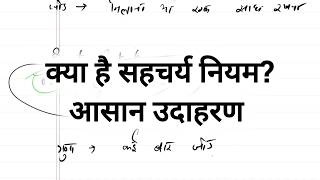 जोड़ → मिलाना या एक साथ रखना
क्या है सहचर्य नियम?
आसान उदाहरण
गुणा → कई बार जोड़